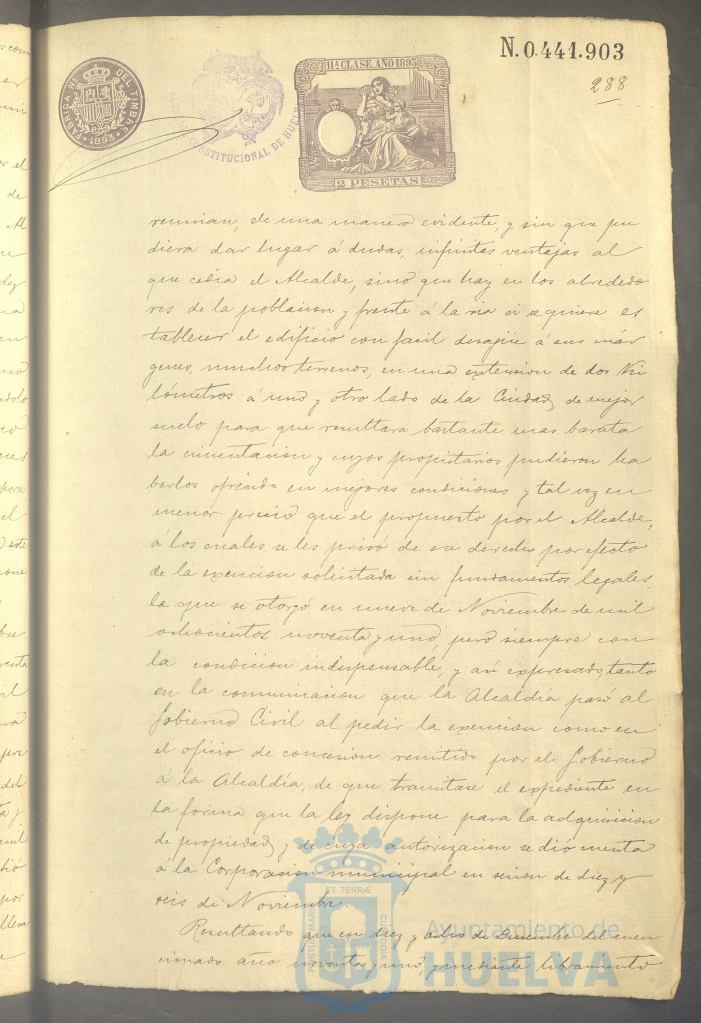 N. 0.441.903
288
FABRICA NL. DEL TIMBRE
1893
CONSTITUCIONAL DE HUEL
11ª CLASE. AÑO 1893
2 PESETAS
reunian, de una manera evidente, y sin que pu
diera dar lugar á dudas, infinitas ventajas al
que cedia el Alcalde, sinó que hay en los alrededo
res de la poblacion y frente á la ria si se quiere es
tablecer el edificio con facil desagüe á sus már
genes, muchos terrenos, en una extension de dos Ki
lómetros á uno y otro lado de la Ciudad, de mejor
suelo para que resultara bastante mas barata
la cimentacion y cuyos propietarios pudieron ha
berlos ofrecido en mejores condiciones y tal vez en
menor precio que el propuesto por el Alcalde,
á los cuales se les privó de ese derecho por efecto
de la exencion solicitada sin fundamentos legales,
la que se otorgó en nueve de Noviembre de mil
ochocientos noventa y uno, pero siempre con
la condicion indispensable, y asi expresada, tanto
en la comunicacion que la Alcaldía pasó al
Gobierno Civil al pedir la exencion como en
el oficio de concesion remitido por el Gobierno
á la Alcaldía, de que tramitase el expediente en
la forma que la ley dispone para la adquisicion
de propiedad, y de cuya autorizacion se dió cuenta
á la Corporacion municipal en sesion de diez y
seis de Noviembre.
Resultando que en diez y ocho de Diciembre del men
cionado año noventa y uno, y mediante libramiento
PORTUS MARIS ET TERRÆ CUSTODIA
Ayuntamiento de
HUELVA